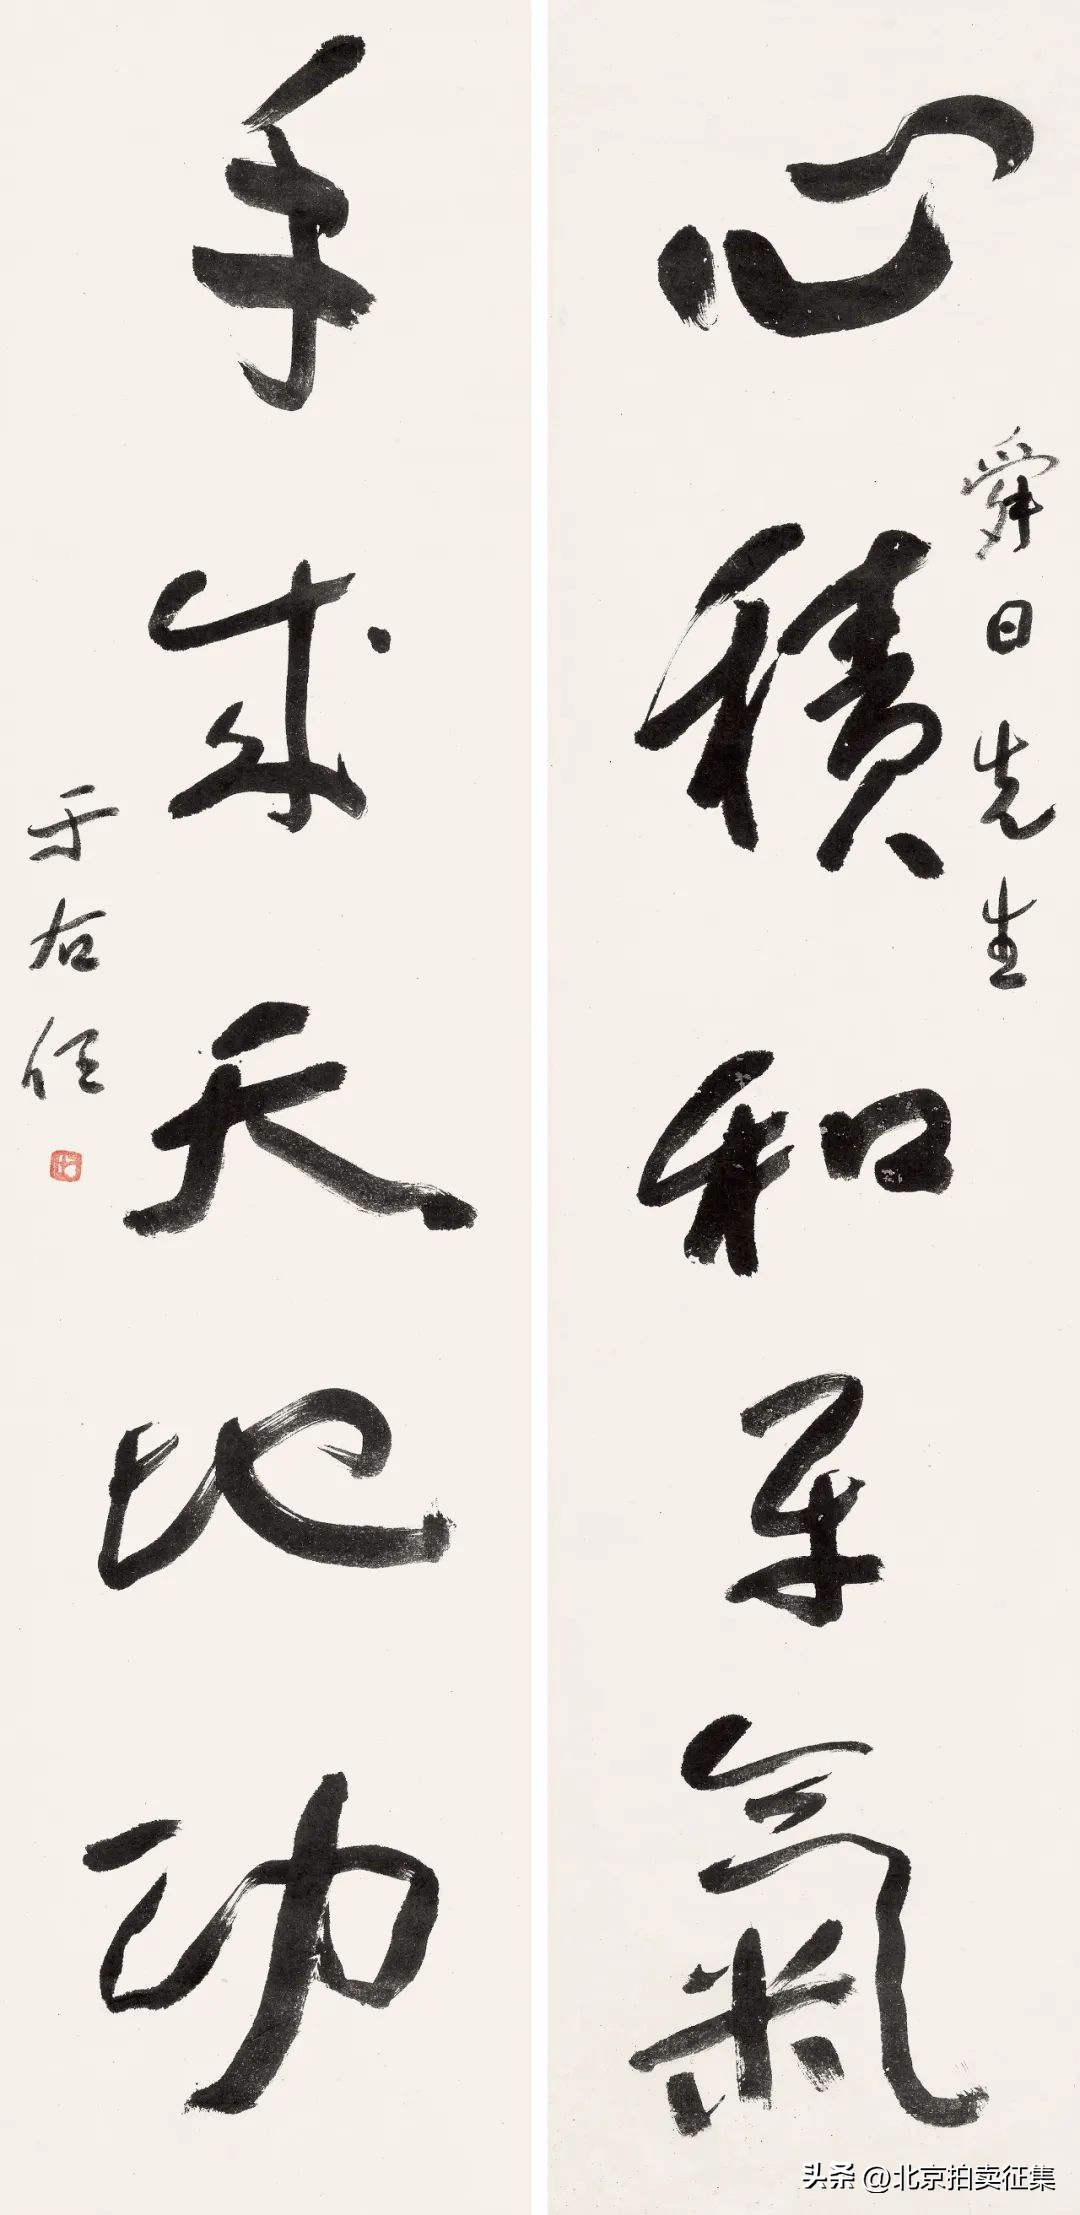 心積和平氣
舜日先生
手成天地功
于右任
头条 @北京拍卖征集